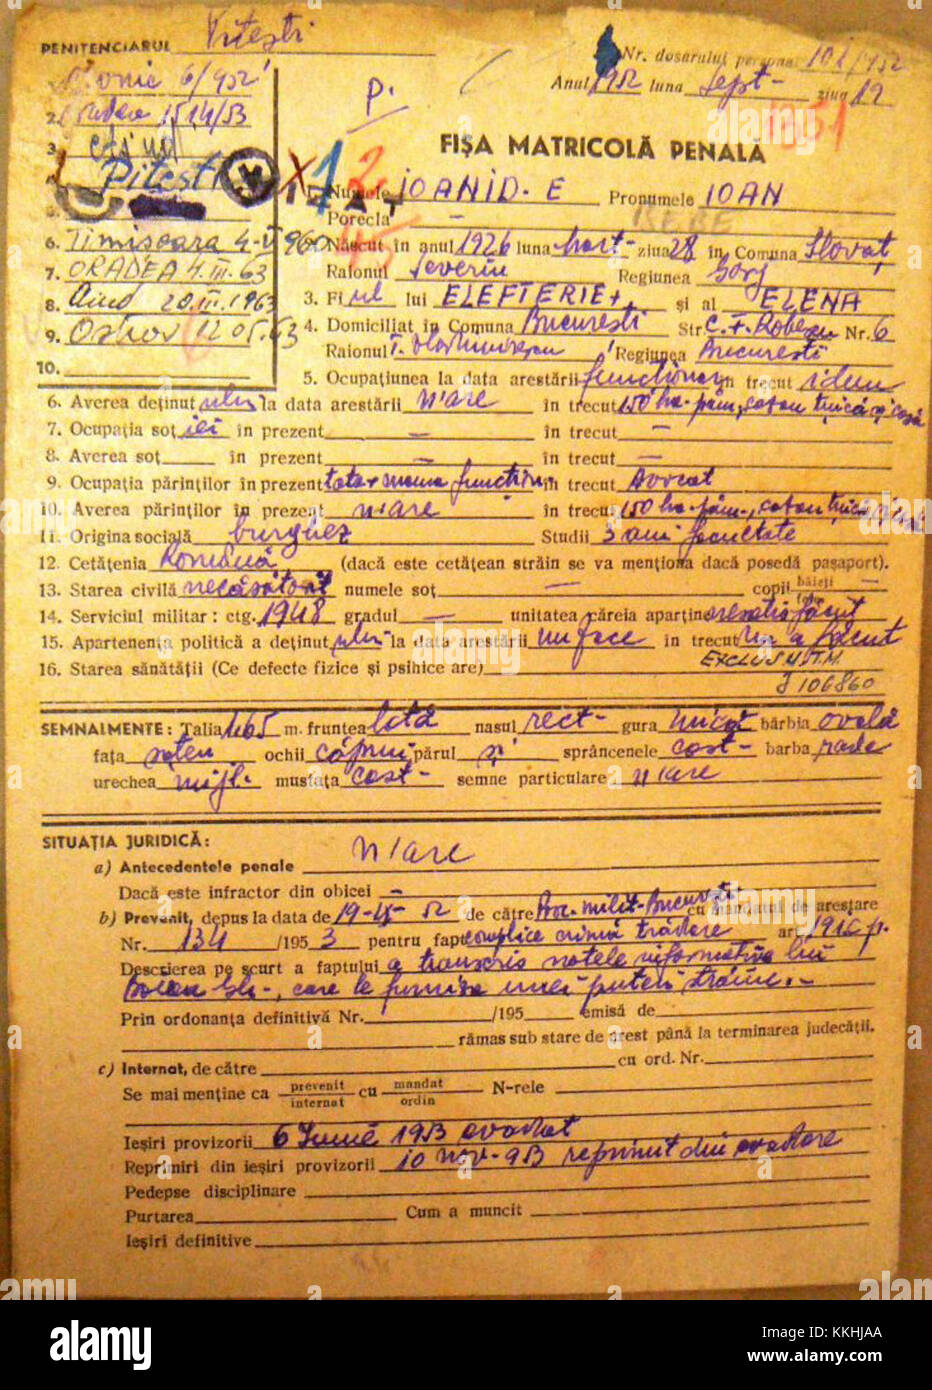 PENITENCIARUL Pitești
Nr. dosarului personal 101/952
Anul 1952 luna Sept- ziua 19
6/952
2. Oradea 15 14/53
3.
4. Pitești
5.
6. Timișoara 4-V 960
7. ORADEA 4.III-63
8. Aiud 20.III.1963
9. Ostrov 12 05.63
10.
P.
1351
FIȘA MATRICOLĂ PENALĂ
1. Numele IOANID-E Pronumele IOAN
BEBE
Porecla —
Născut în anul 1926 luna Mart- ziua 28 în Comuna Ilovăț
Raionul Severin Regiunea Gorj
3. Fiul lui ELEFTERIE+ și al ELENA
4. Domiciliat în Comuna București Str. C.F. Robescu Nr. 6
Raionul T. Vladimirescu Regiunea București
5. Ocupațiunea la data arestării funcționar în trecut idem
6. Averea deținutului la data arestării n'are în trecut 150 ha-păm, cazan țuică și casă
7. Ocupația soției în prezent — în trecut —
8. Averea soț în prezent — în trecut —
9. Ocupația părinților în prezent tata+ mama funcțion în trecut Avocat
10. Averea părinților în prezent n'are în trecut 150 ha-păm, cazan țuică și casă
11. Origina socială burghez Studii 3 ani facultate
12. Cetățenia Română (dacă este cetățean străin se va menționa dacă posedă pașaport).
13. Starea civilă necăsătorit numele soț — copii băieți —
14. Serviciul militar: ctg. 1948 gradul — unitatea căreia aparține nesatisfăcut
15. Apartenența politică a deținutului la data arestării nu face în trecut nu a făcut
EXCLUS U.T.M.
16. Starea sănătății (Ce defecte fizice și psihice are)
J 106860
SEMNALMENTE: Talia 1,65 m. fruntea lată nasul rect- gura mică bărbia ovală
fața șaten ochii căprui părul și sprâncenele cast- barba rade
urechea mijl. mustața cast- semne particulare n'are
SITUAȚIA JURIDICĂ:
a) Antecedentele penale n'are
Dacă este infractor din obicei —
b) Prevenit, depus la data de 19-IX-52 de către Proc. milit-București cu mandatul de arestare
Nr. 134 /1953 pentru fapt complice crimă trădare art.
Descrierea pe scurt a faptului a transcris notele informative lui
, care le furniza unei puteri străine.-
Prin ordonanța definitivă Nr. /195 emisă de
rămas sub stare de arest până la terminarea judecății.
c) Internat, de către cu ord. Nr.
Se mai menține ca prevenit/internat cu mandat/ordin N-rele
Ieșiri provizorii 6 Iunie 1953 evadat
Reprimiri din ieșiri provizorii 10 nov-953 reprimit din evadare
Pedepse disciplinare
Purtarea Cum a muncit
Ieșiri definitive
alamy
Image ID: KKHJAA
www.alamy.com